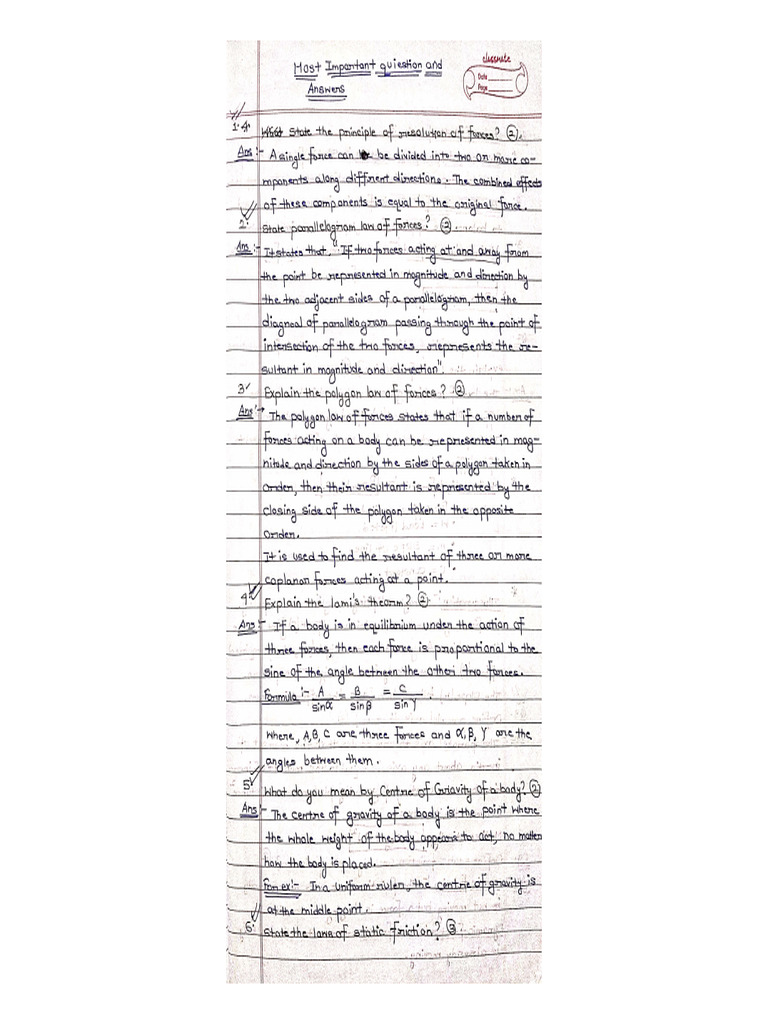 Most Important quiestion and
Answers
classmate
Date
Page
1.4. State the principle of resolution of forces? (2).
Ans:- A single force can be divided into two or more co-
mponents along diffrent directions. The combined effects
of these components is equal to the original force.
2. State parallelogram law of forces? (2).
Ans:- It states that, "If two forces acting at and away from
the point be represented in magnitude and direction by
the two adjacent sides of a parallelogram, then the
diagnoal of parallelogram passing through the point of
intersection of the two forces, represents the re-
sultant in magnitude and direction".
3. Explain the polygon law of forces? (2)
Ans:→ The polygon law of forces states that if a number of
forces acting on a body can be represented in mag-
nitude and direction by the sides of a polygon taken in
order, then their resultant is represented by the
closing side of the polygon taken in the opposite
order.
It is used to find the resultant of three or more
coplanar forces acting at a point.
4. Explain the lami's theorm? (2)
Ans:- If a body is in equilibrium under the action of
three forces, then each force is proportional to the
sine of the angle between the other two forces.
Formula:- A/sinα = B/sinβ = C/sinγ.
Where, A,B,C are three forces and α,β,γ are the
angles between them.
5. What do you mean by Centre of Gravity of a body? (2)
Ans:- The centre of gravity of a body is the point where
the whole weight of the body appears to act, no matter
how the body is placed.
For ex:- In a uniform ruler, the centre of gravity is
at the middle point.
6. State the laws of static friction? (3)